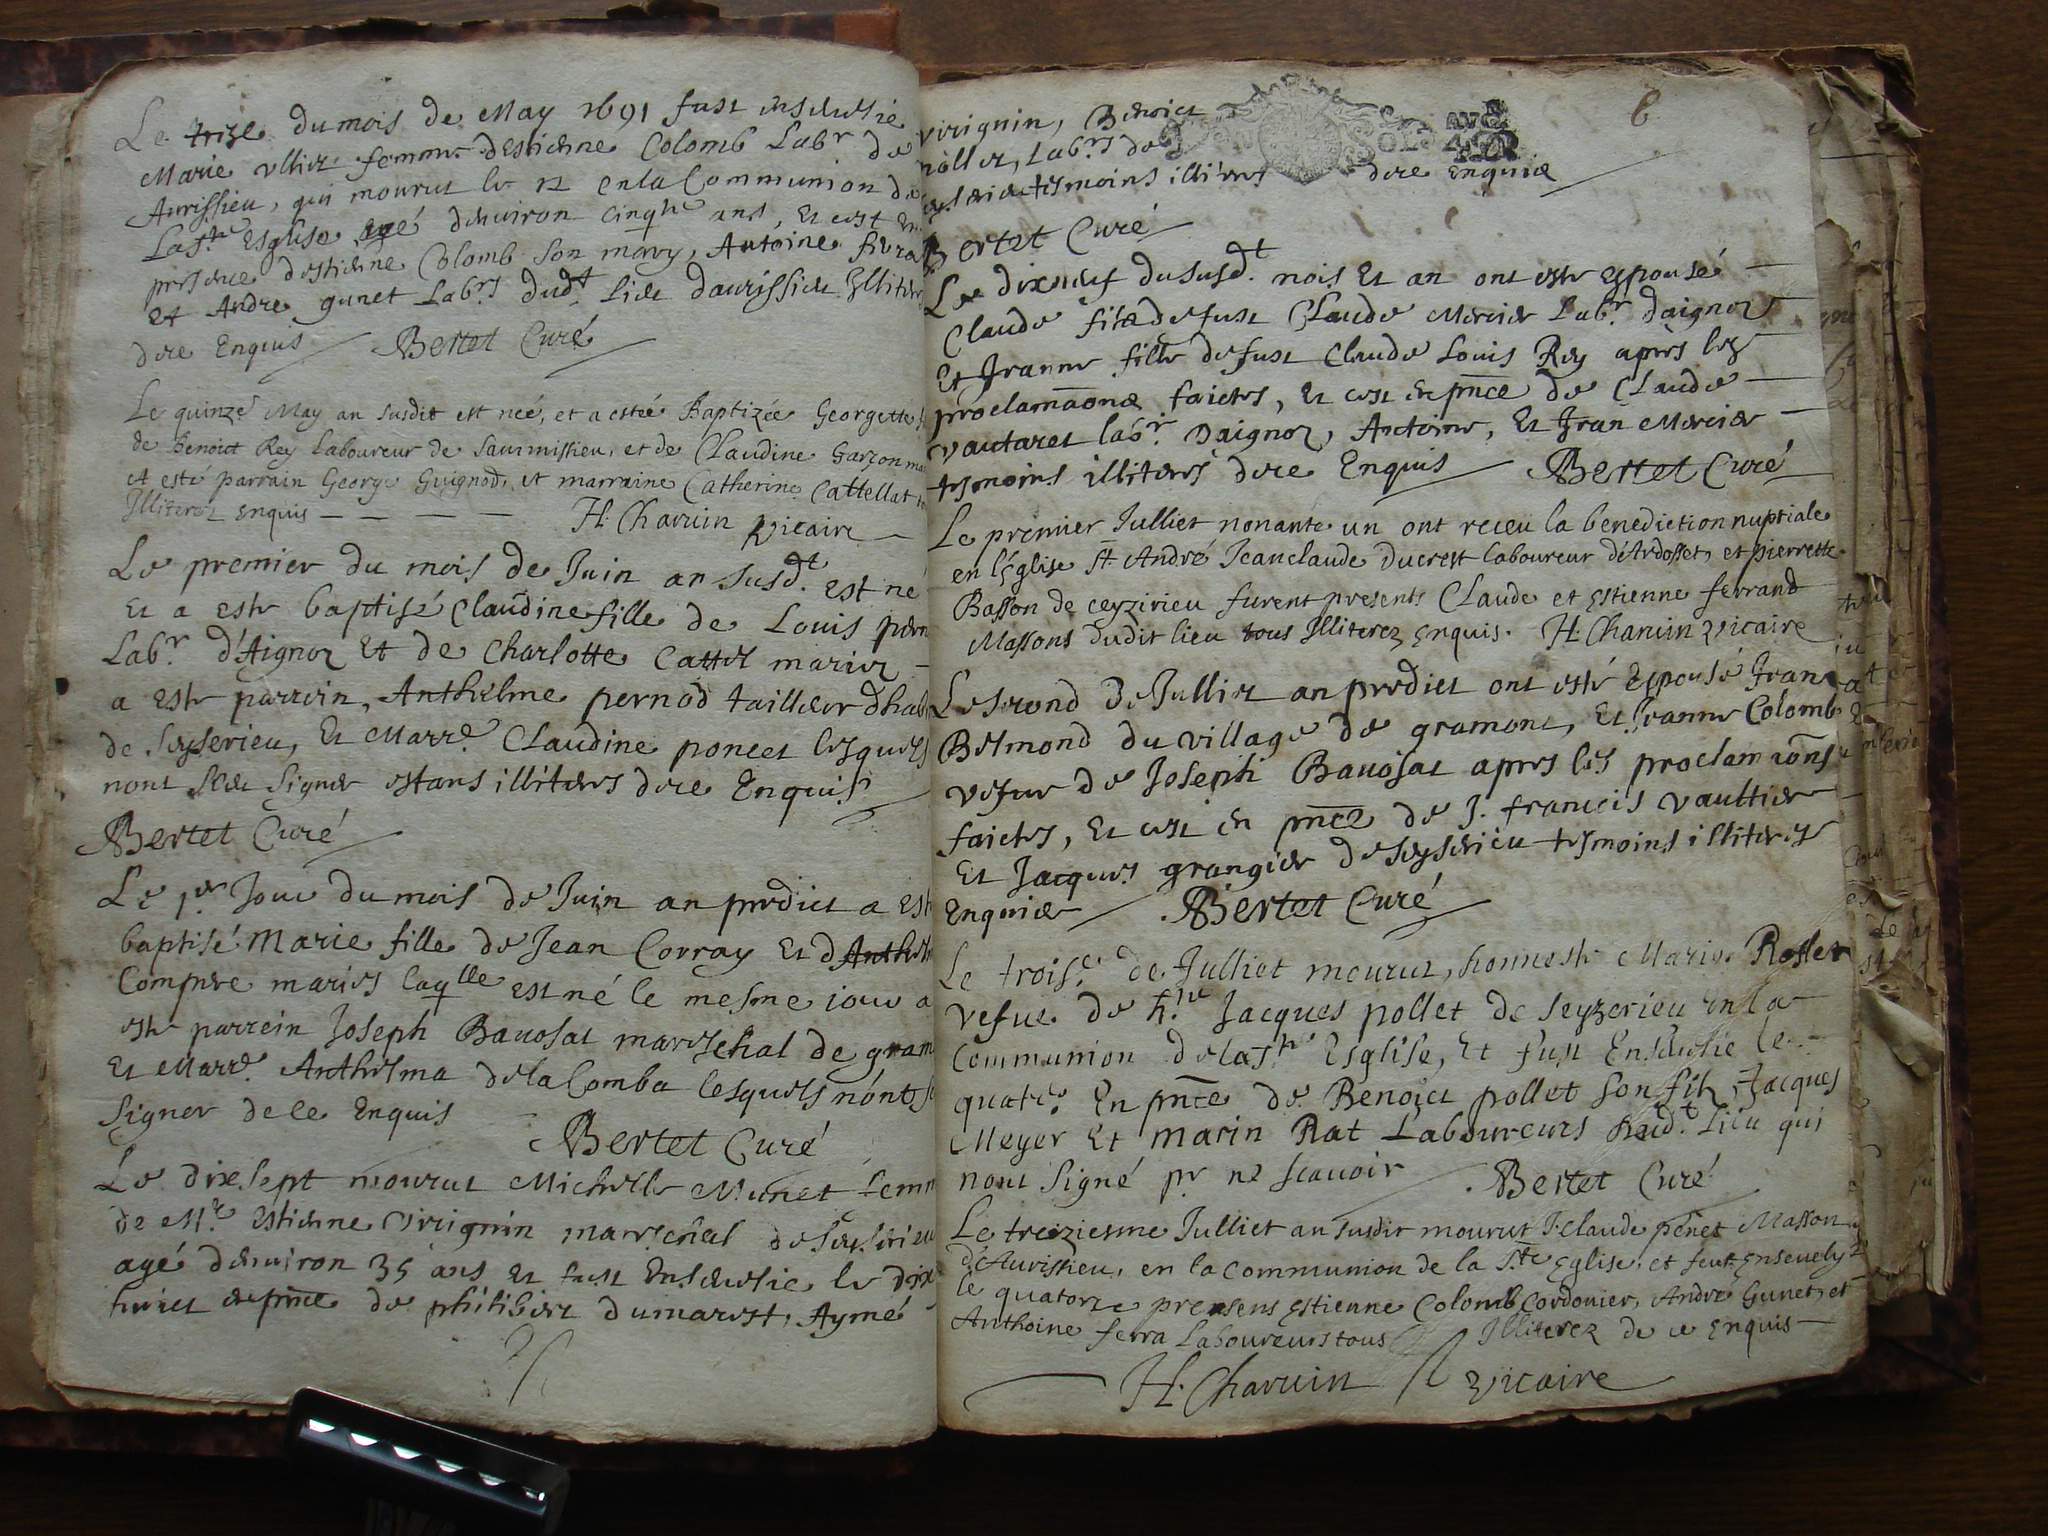 Le treize du mois de May 1691 fust ensevelie
Marie ullier femme destienne Colomb Labr de
Aurissieu, qui mourut le 12 en la Communion de
La ste Esglise agé denviron cinqte ans, Et cest en
presence destienne Colomb son mary, Antoine fivra
et Andre gunet Labrs dudt Lieu daurissieu Illiteres
de ce Enquis Bertet Curé
Le quinze May an susdit est neé, et a esteé Baptizée Georgette
de Benoict Rey Laboureur de Saurmissieu, et de CLaudine Garzon
et esté parrain George Guignod, et marraine Catherine Cattellat
Illiterez enquis H. Charvin vicaire
Le premier du mois de Juin an susdt est né
Et a este baptisé Claudine fille de Louis pern
Labr d'Aignoz Et de Charlotte Cattel mariez
a este parrein, Anthelme pernod tailleur dhab
de seyserieu, Et Marre CLaudine poncet lesquels
nont sceu signer estans illiteres de ce Enquis
Bertet Curé
Le 1er Jour du mois de Juin an predict a este
baptisé Marie fille de Jean Corray Et dAnthel
Compere mariés laqlle est né le mesme iour a
este parrein Joseph Bavosat mareschal de gram
Et Marre Anthelma dela Comba lesquels nont s
signer de ce Enquis
Bertet Curé
Le dixsept mourut Michelle Munet femm
de Mre Estienne Virignin mareschal de seyserieu
agé denviron 35 ans Et fust Ensevelie le dix
huict en pnce de philibert dumarest, Aymé
virignin, Benoict
nollet, Labrs de
seyserieu tesmoins illiteres de ce enquis
6
Bertet Curé
Le dixneuf du susdt mois Et an ont este espousé
Claude filz defust CLaude Mercier Labr daignoz
Et Jeanne fille defust Claude Louis Rey apres les
proclamaons faictes, Et cest en pnce de CLaude
vautaret labr Daignoz, Antoine, Et Jean Mercier
tesmoins illiteres de ce Enquis Bertet Curé
Le premier Julliet nonante un ont receu la benediction nuptiale
en l'église st André Jeanclaude Ducrest laboureur d'Ardosset, et pierrette
Basson de ceyzirieu furent presents CLaude et Estienne ferrand
Massons dudit lieu tous Illiterez enquis. H. Charvin vicaire
Le second De Julliet an predict ont esté Espousé Jean
Belmond du village de gramont, Et Jeanne Colomb
vefue de Joseph Bavosat apres les proclamaons
faictes, Et cest en pnce de J. francois vauttier
Et Jacques grangier de seyserieu tesmoins illiteres
Enquis Bertet Curé
Le troise de Julliet mourut, honneste Marie Rosset
Vefue de hne Jacques pollet de seyzerieu en la
Communion de la ste Esglise, Et fust Ensevelie le
quatre En pnce de Benoict pollet son filz, Jacques
Meyer Et marin Rat Laboureurs dudt Lieu qui
nont signé pr ne scavoir Bertet Curé
Le treiziesme Julliet an susdit mourut J. Claude penet Masson
d'Aurissieu, en la communion de la Ste Eglise, et feut ensevely
le quatorze presens Estienne Colomb Cordonier, Andre Gunet, et
Anthoine ferra Laboureurs tous Illiterez de ce enquis
H. Charvin vicaire